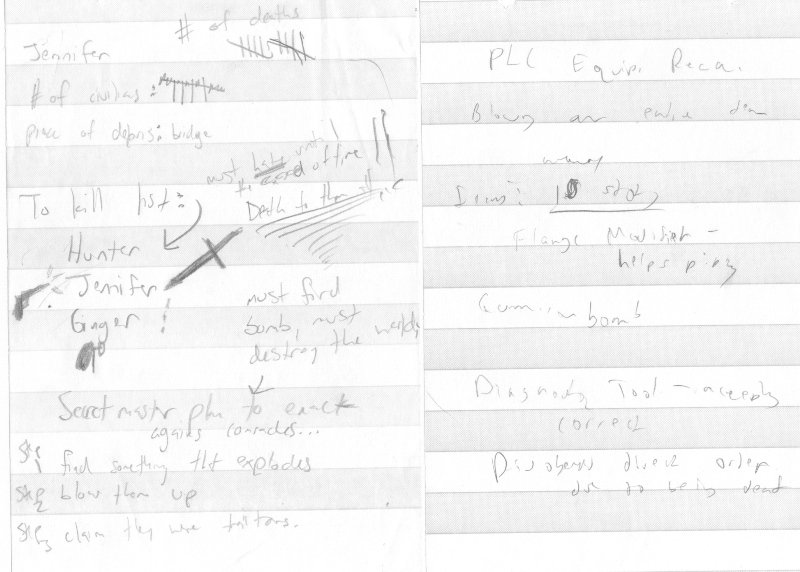 # of deaths
Jennifer
# of civilians:
piece of debris: bridge
must hate until
the end of time
To kill list: Death to them all
Hunter
Jennifer
Ginger !
must find
bomb, must
destroy the world
Secret master plan to enact
agains comrades...
Step 1 find something tht explodes
Step 2 blow them up
Step 3 claim they were traitors.
PLC Equip. Reca.
Blowing an entire
10 story
Flange Modifier -
helps
bomb
Diagnosty Tool -
correct
Disobeyed direct order
due to being dead